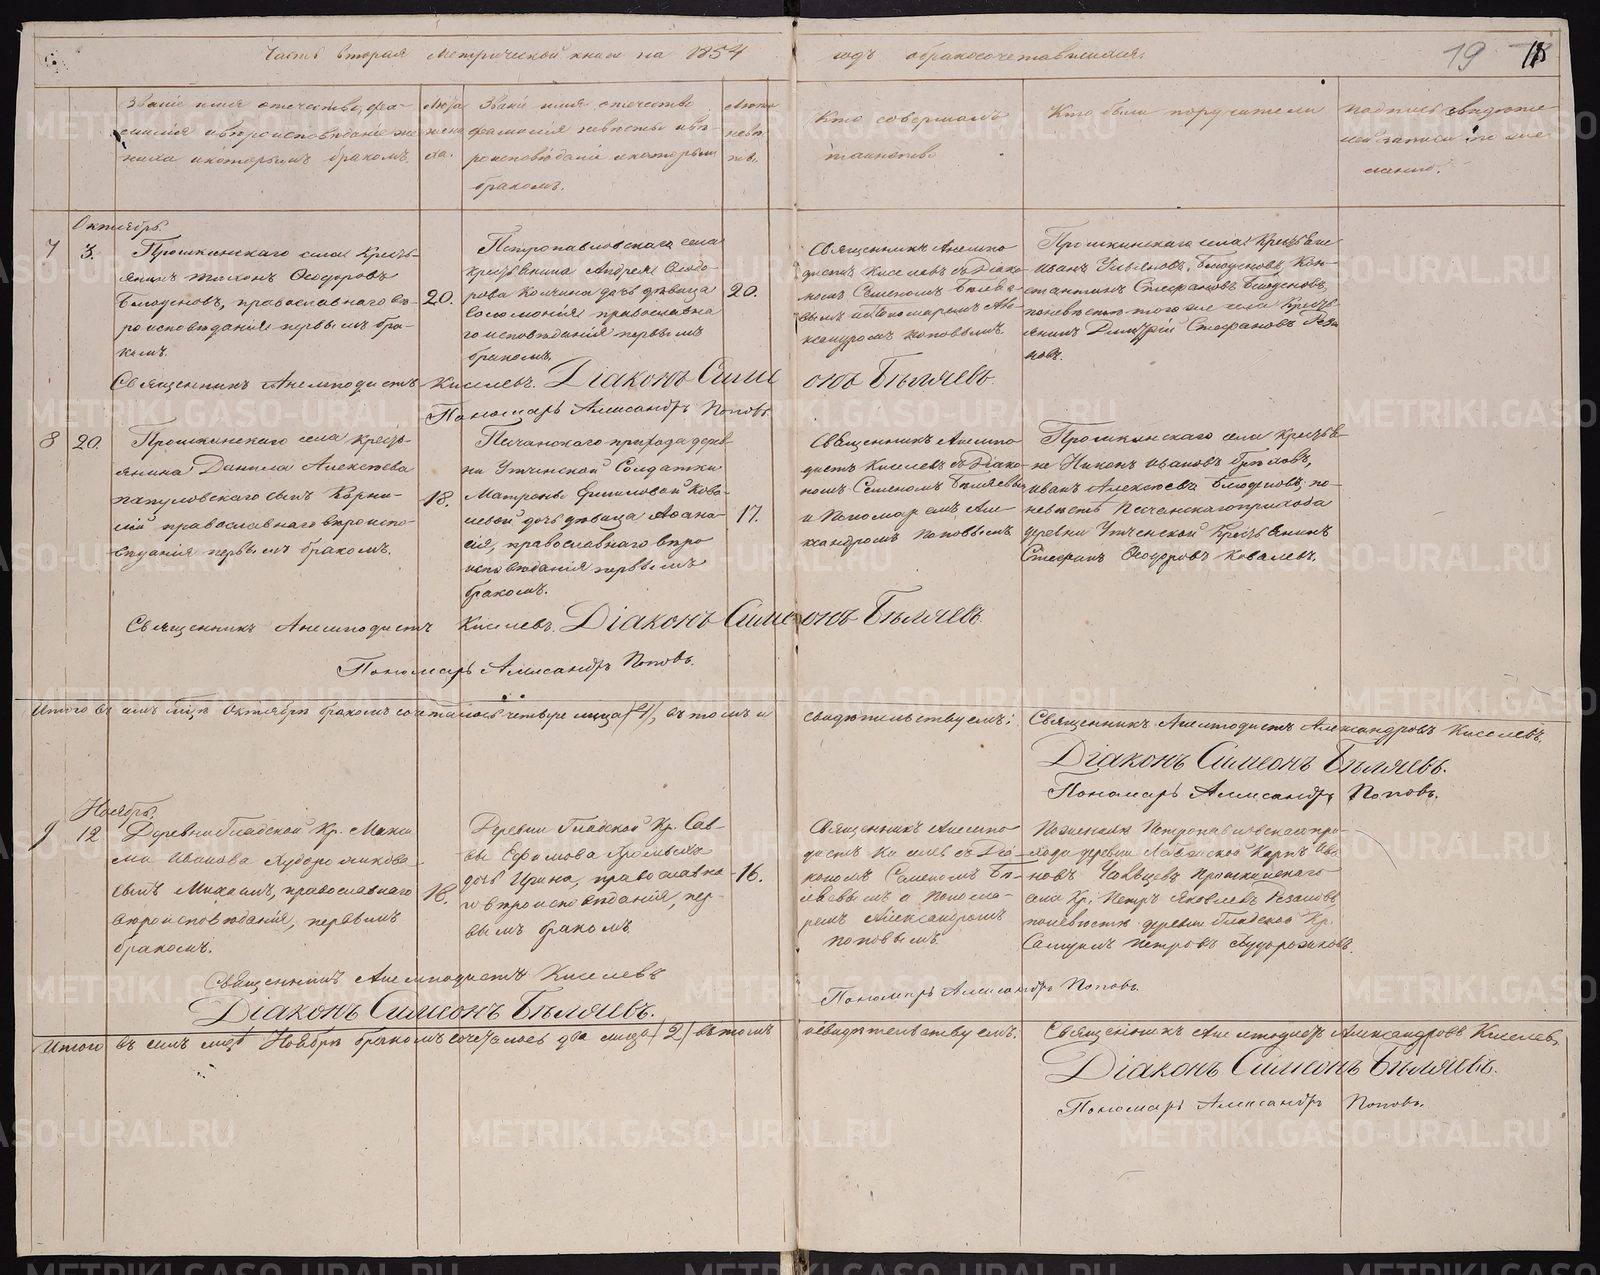 Часть вторая Метрической книги на 1854
годъ о бракосочетавшихся.
19
Званіе имя отечество, фа-
милія и вѣроисповѣданіе же-
ниха и которымъ бракомъ.
Лѣта
жени
ха.
Званіе имя отечество
фамилія невѣсты и вѣ-
роисповѣданіе и которымъ
бракомъ.
Лѣта
невѣ
сты.
Кто совершалъ
таинство
Кто были поручители
Подпись свидѣте
лей записи по же
ланію.
Октябрь.
7
3.
Прошкинскаго села Кресть-
янинъ Тихонъ Ѳеодоровъ
православнаго вѣ-
роисповѣданія первымъ бра-
комъ.
20.
Петропавловскаго села
крестьянина Андрея Ѳеодо-
рова дочь дѣвица
Соломонія православна
го исповѣданія первымъ
бракомъ.
20.
Священникъ Анемпо
дистъ Киселевъ съ Діако-
номъ Семеномъ Бѣляе-
вымъ и Пономаремъ Але-
ксандромъ Поповымъ.
Прошкинскаго села Крестьяне
Иванъ Кон-
стантинъ Стефановъ
поневѣстѣ того же села Кресть-
янинъ Димитрій Стефановъ Реза
новъ.
Священникъ Анемподистъ Киселевъ. Діаконъ Симеонъ Бѣляевъ
Пономарь Александръ Поповъ
8
20.
Прошкинскаго села кресть-
янина Данила Алексѣева
сынъ Корни-
лій православнаго вѣроиспо-
вѣданія первымъ бракомъ.
18.
Песчанскаго прихода дерев-
ни Утчинской Солдатки
Матрены Кова-
левой дочь дѣвица Аѳана-
сія, православнаго вѣро
исповѣданія первымъ
бракомъ.
17.
Священникъ Анемпо
дистъ Киселевъ съ Діако-
номъ Семеномъ Бѣляевымъ
и Пономаремъ Але-
ксандромъ Поповымъ
Прошкинскаго села Крестья-
не Никонъ Ивановъ
Иванъ Алексѣевъ по-
невѣстѣ Песчанскаго прихода
деревни Утчинской Крестьянинъ
Стефанъ Ѳеодоровъ Ковалевъ.
Священникъ Анемподистъ Киселевъ. Діаконъ Симеонъ Бѣляевъ.
Пономарь Александръ Поповъ.
Итого въ семъ м҃цѣ Октябрѣ бракомъ сочеталось четыре лица (4), въ томъ и
свидѣтельствуемъ:
Священникъ Анемподистъ Александровъ Киселевъ.
Діаконъ Симеонъ Бѣляевъ.
Пономарь Александръ Поповъ.
Ноябрь.
9
12
Деревни Гладской Кр. Макси
ма Иванова Худорожкова
сынъ Михаилъ, православнаго
вѣроисповѣданія, первымъ
бракомъ.
18.
Деревни Гладской Кр. Сав-
вы Ефимова
дочь Ирина, православна-
го вѣроисповѣданія, пер-
вымъ бракомъ
16.
Священникъ Анемпо
дистъ Киселевъ съ Діа-
кономъ Семеномъ Бѣ-
ляевымъ и Понома-
ремъ Александромъ
Поповымъ.
Пожениху Петропавловскаго при-
хода деревни Карпъ Ива
новъ Прошкинскаго
села Кр: Петръ Яковлевъ Резановъ,
поневѣстѣ деревни Гладской Кр.
Самуилъ Петровъ Худорожковъ.
Священникъ Анемподистъ Киселевъ
Діаконъ Симеонъ Бѣляевъ.
Пономарь Александръ Поповъ.
Итого въ семъ м҃цѣ Ноябрѣ бракомъ сочеталось два лица (2) въ томъ
и свидѣтельствуемъ.
Священникъ Анемподистъ Александровъ Киселевъ,
Діаконъ Симеонъ Бѣляевъ.
Пономарь Александръ Поповъ.
METRIKI.GASO-URAL.RU